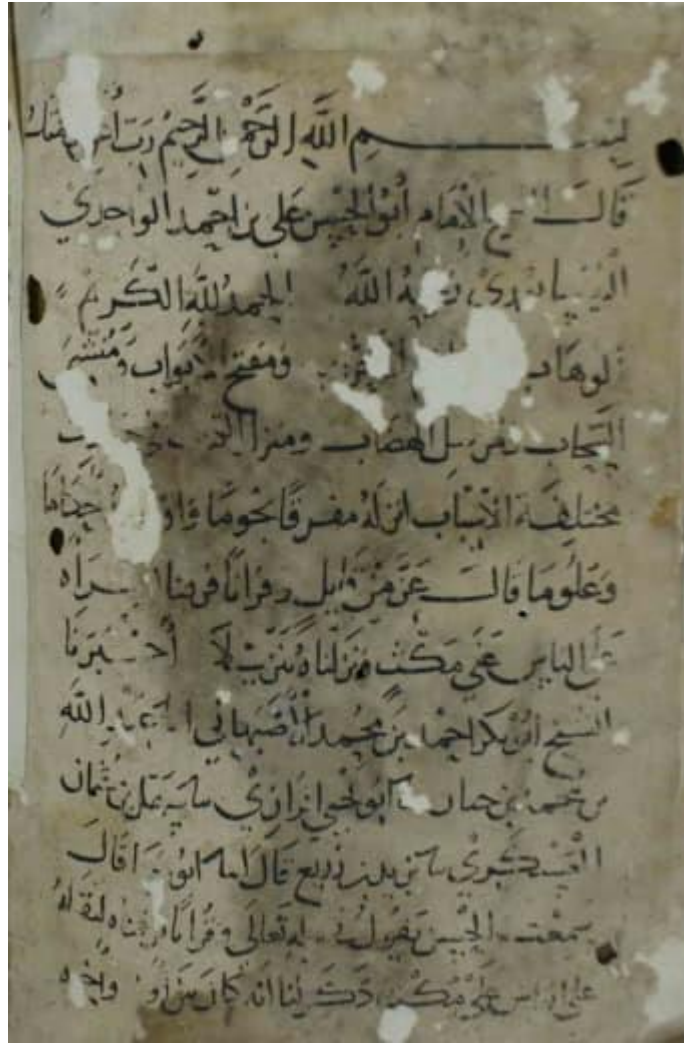 بسم الله الرحمن الرحيم رب
قال الامام أبو الحسن علي بن احمد الواحدي
النيسابوري رحمه الله الحمد لله الكريم
الوهاب ومفتح الابواب ومنشئ
السحاب ومرسل الهضاب ومنزل
مختلفة الاسباب انزله مفرقا نجوما احكاما
وعلوما قال عز من قايل وقرانا فرقناه لتقرأه
على الناس على مكث ونزلناه تنزيلا أخبرنا
الشيخ أبو بكر احمد بن محمد الأصبهاني عبد الله
بن محمد بن حيان أبو يحيى الرازي سهل بن عثمان
العسكري يزيد بن زريع قال ابو رجا قال
سمعت الحسن يقول في تعالى وقرانا فرقناه لتقراه
على الناس على مكث ذكر لنا انه كان بين